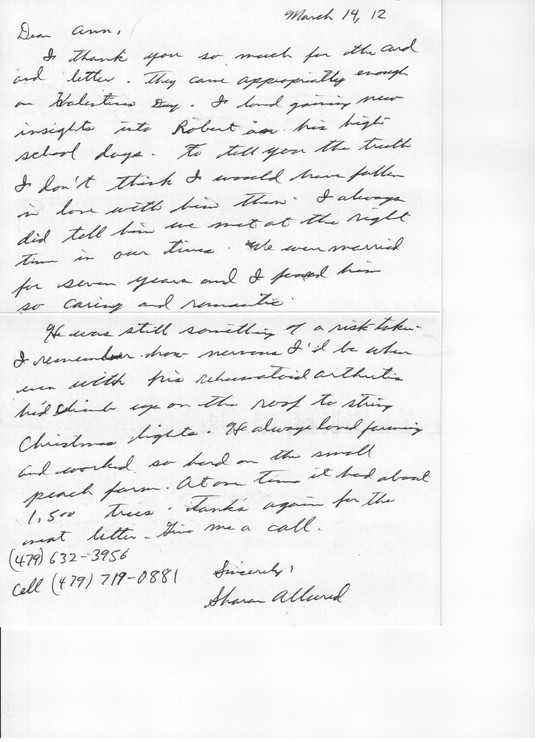 March 14, 12
Dear Ann,
I thank you so much for the card
and letter. They came appropriatly enough
on Valentine Day. I loved gaining new
insights into Robert in his high
school days. To tell you the truth
I don't think I would have fallen
in love with him then. I always
did tell him we met at the right
time in our lives. We were married
for seven years and I found him
so caring and romantic.
He was still something of a risk taker.
I remember how nervous I'd be when
even with his rheumatoid arthritis
he'd climb up on the roof to string
Christmas lights. He always loved farming
and worked so hard on the small
peach farm. At one time it had about
1,500 trees. Thanks again for the
letter. Give me a call.
(479) 632-3956
Cell (479) 719-0881
Sincerely,
Sharon Allured